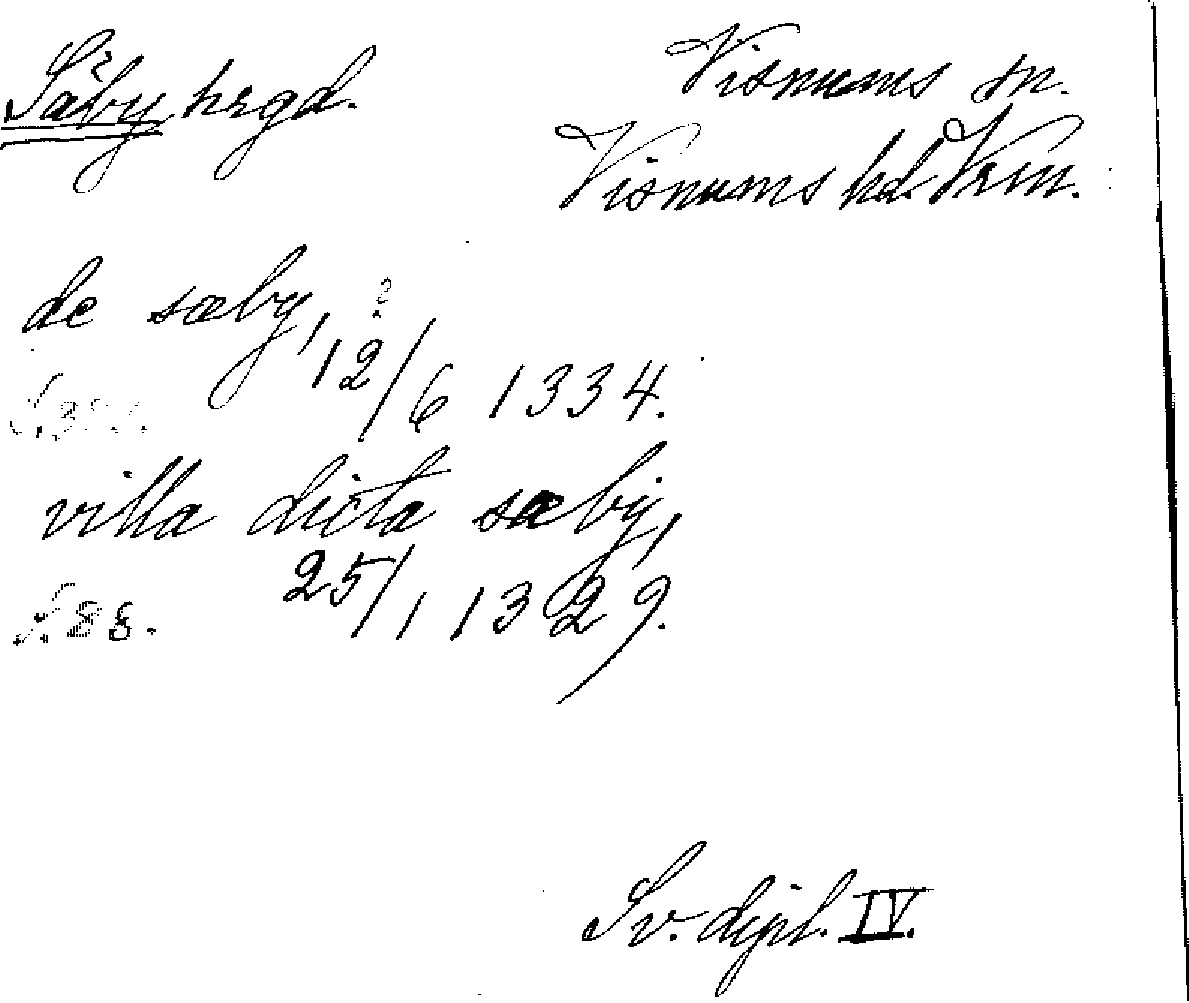 Säby hrgd.
Visnums sn.
Visnums hd. Vrm.
de sæby, ?
12/6 1334.
villa dicta sæby,
S. 88. 25/1 1329.
Sv. dipl. IV.